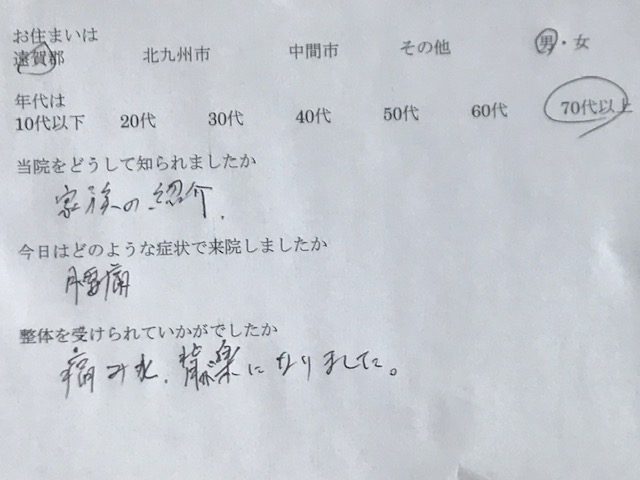 お住まいは
遠賀郡 北九州市 中間市 その他 男・女
年代は
10代以下 20代 30代 40代 50代 60代 70代以上
当院をどうして知られましたか
家族の紹介.
今日はどのような症状で来院しましたか
腰痛
整体を受けられていかがでしたか
痛み 楽になりました。